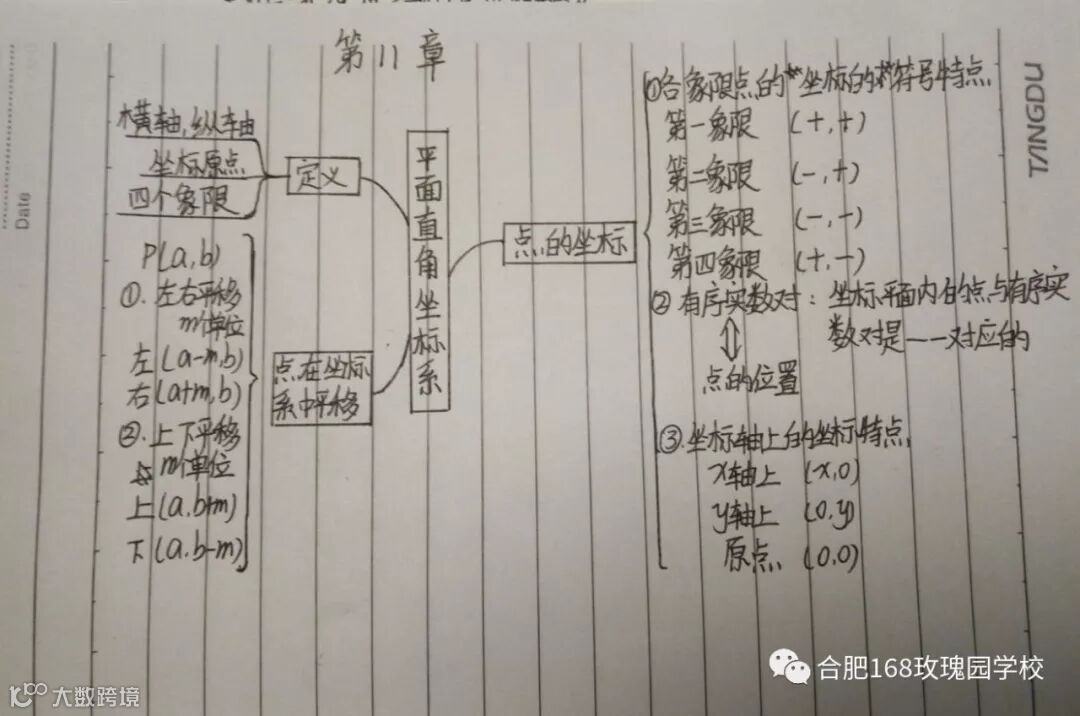 第11章
平面直角坐标系
定义
横轴,纵轴
坐标原点
四个象限
点在坐标
系中平移
P(a,b)
①.左右平移
m个单位
左(a-m,b)
右(a+m,b)
②.上下平移
m个单位
上(a,b+m)
下(a,b-m)
点的坐标
①各象限点的坐标的符号特点
第一象限 (+,+)
第二象限 (-,+)
第三象限 (-,-)
第四象限 (+,-)
②有序实数对:坐标平面内的点与有序实
数对是一一对应的
点的位置
③.坐标轴上的坐标特点
x轴上 (x,0)
y轴上 (0,y)
原点 (0,0)
Date
合肥168玫瑰园学校
大数跨境